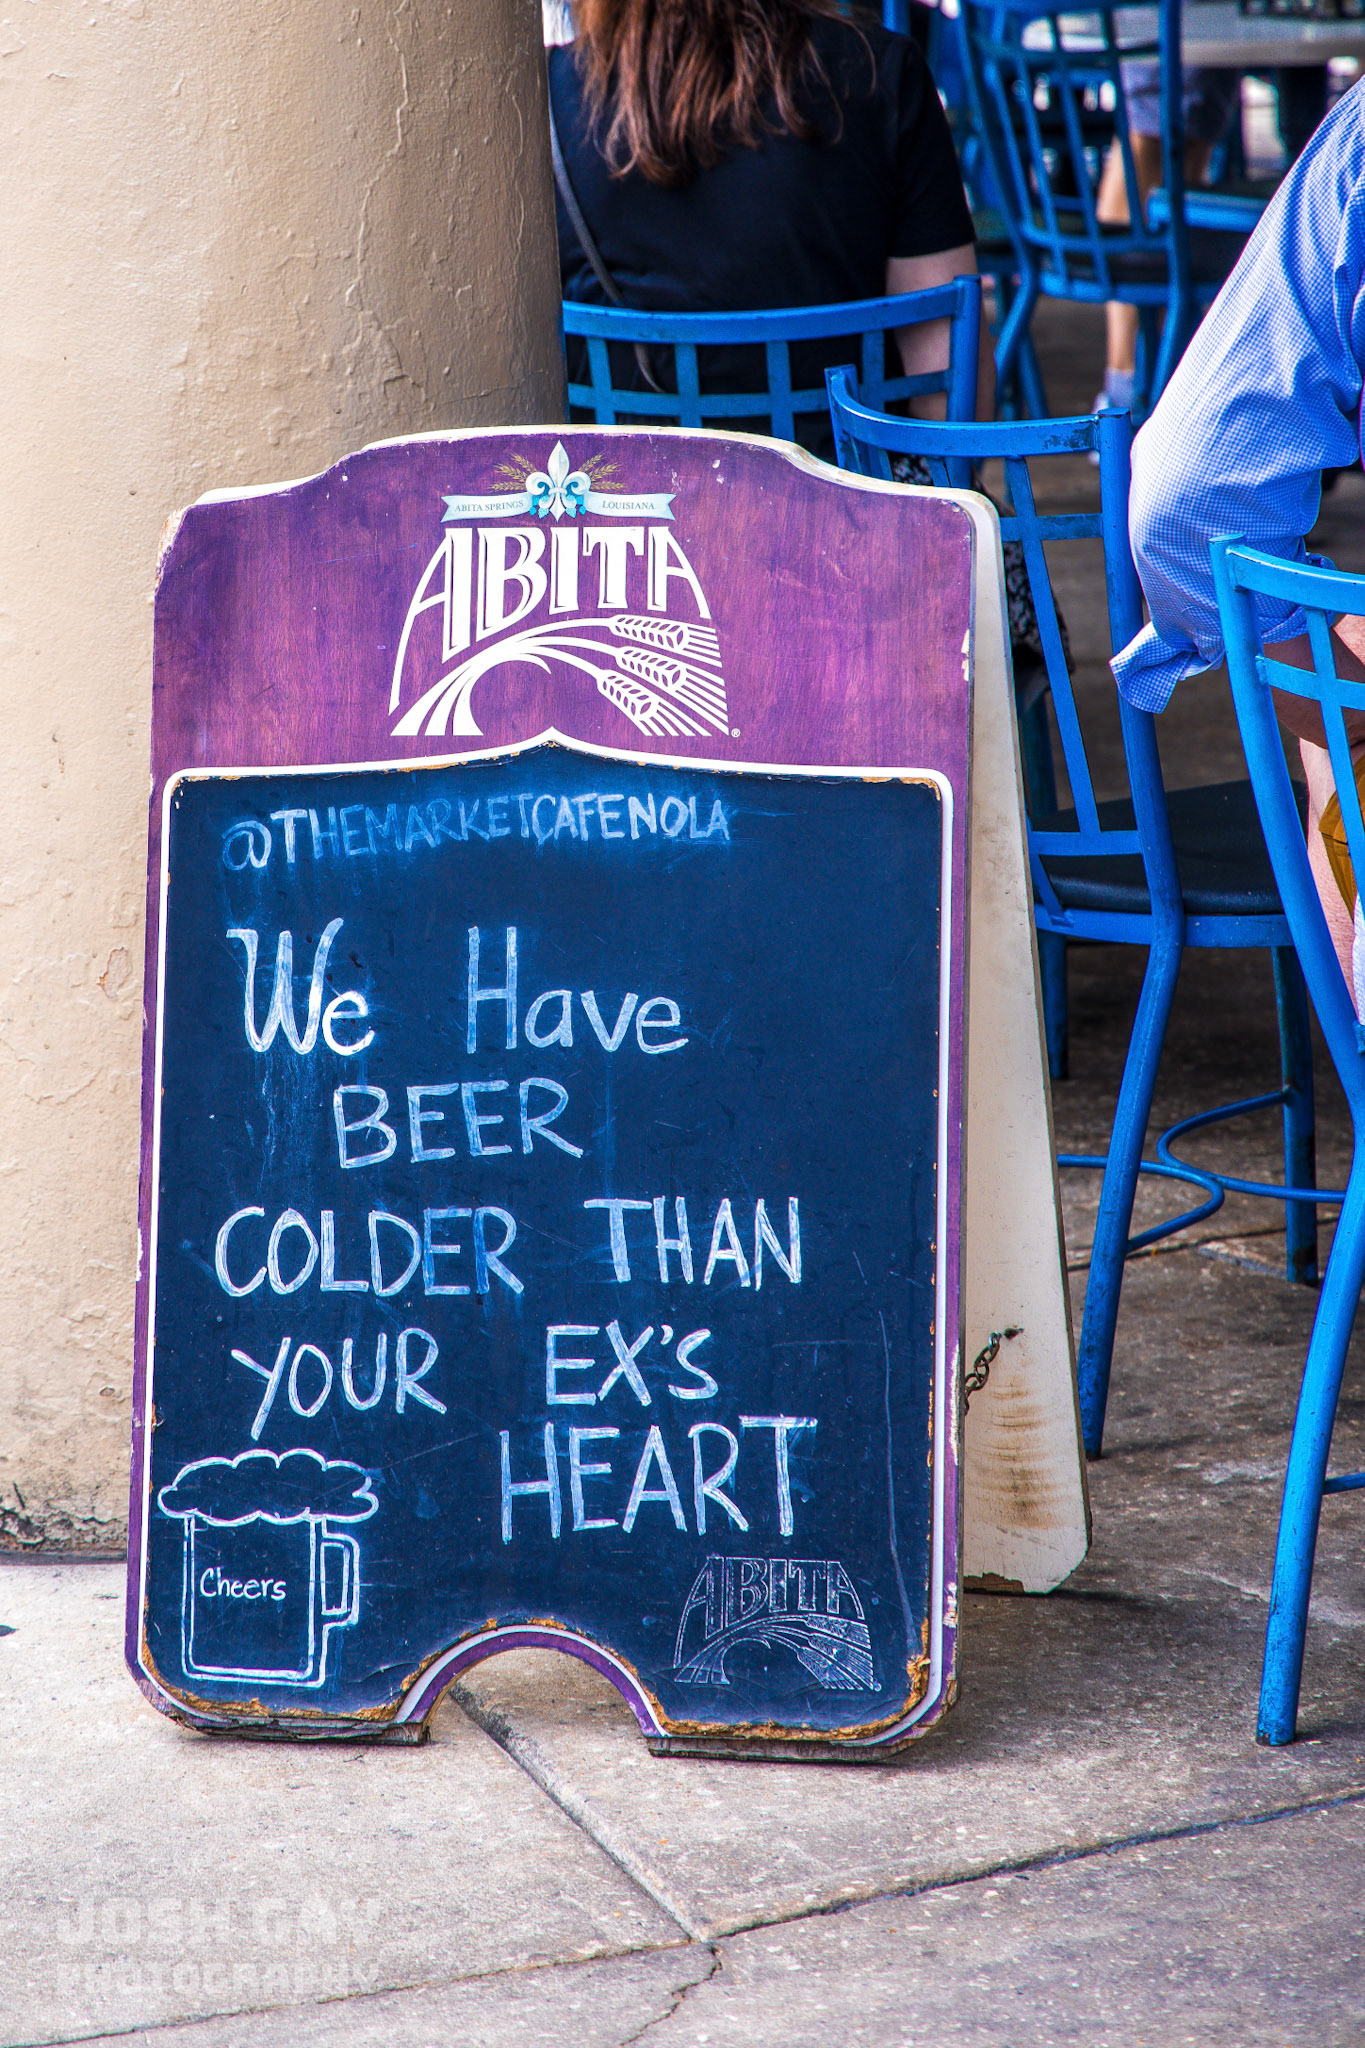 ABITA SPRINGS LOUISIANA
ABITA
®
@THEMARKETCAFENOLA
We Have
BEER
COLDER THAN
YOUR EX'S
HEART
Cheers
ABITA
JOSH GAY
PHOTOGRAPHY